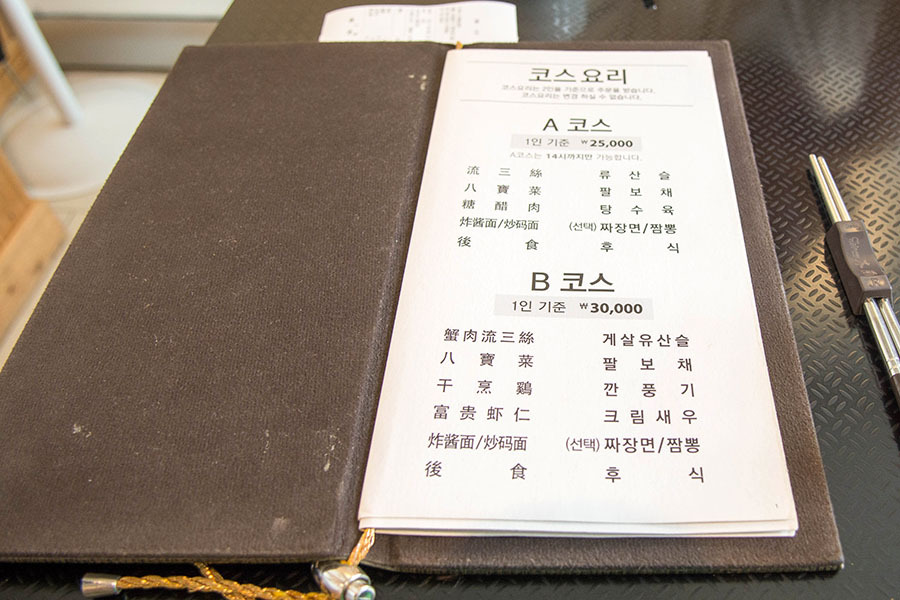 코스요리
코스요리는 2인을 기준으로 주문을 받습니다.
코스요리는 변경 하실 수 없습니다.
A 코스
1인 기준 ₩25,000
A코스는 14시까지만 가능합니다.
流 三 絲 류 산 슬
八 寶 菜 팔 보 채
糖 醋 肉 탕 수 육
炸酱面/炒码面 (선택) 짜장면/짬뽕
後 食 후 식
B 코스
1인 기준 ₩30,000
蟹肉流三絲 게살유산슬
八 寶 菜 팔 보 채
干 烹 鷄 깐 풍 기
富 贵 虾 仁 크 림 새 우
炸酱面/炒码面 (선택) 짜장면/짬뽕
後 食 후 식